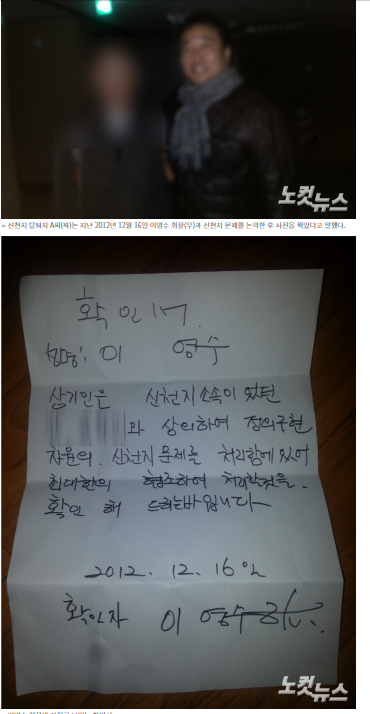 노컷뉴스
▲ 신천지 탈퇴자 A씨(좌)는 지난 2012년 12월 16일 이영수 회장(우)과 신천지 문제를 논의한 후 사진을 찍었다고 말했다.
확인서.
성명: 이 영수
상기인은 신천지 소속이었던
와 상의하여 정의구현
차원의. 신천지 문제를 처리함에 있어
최대한의 협조하여 처리할것을.
확인 해 드리는바입니다
2012. 12. 16일
확인자 이 영수
노컷뉴스